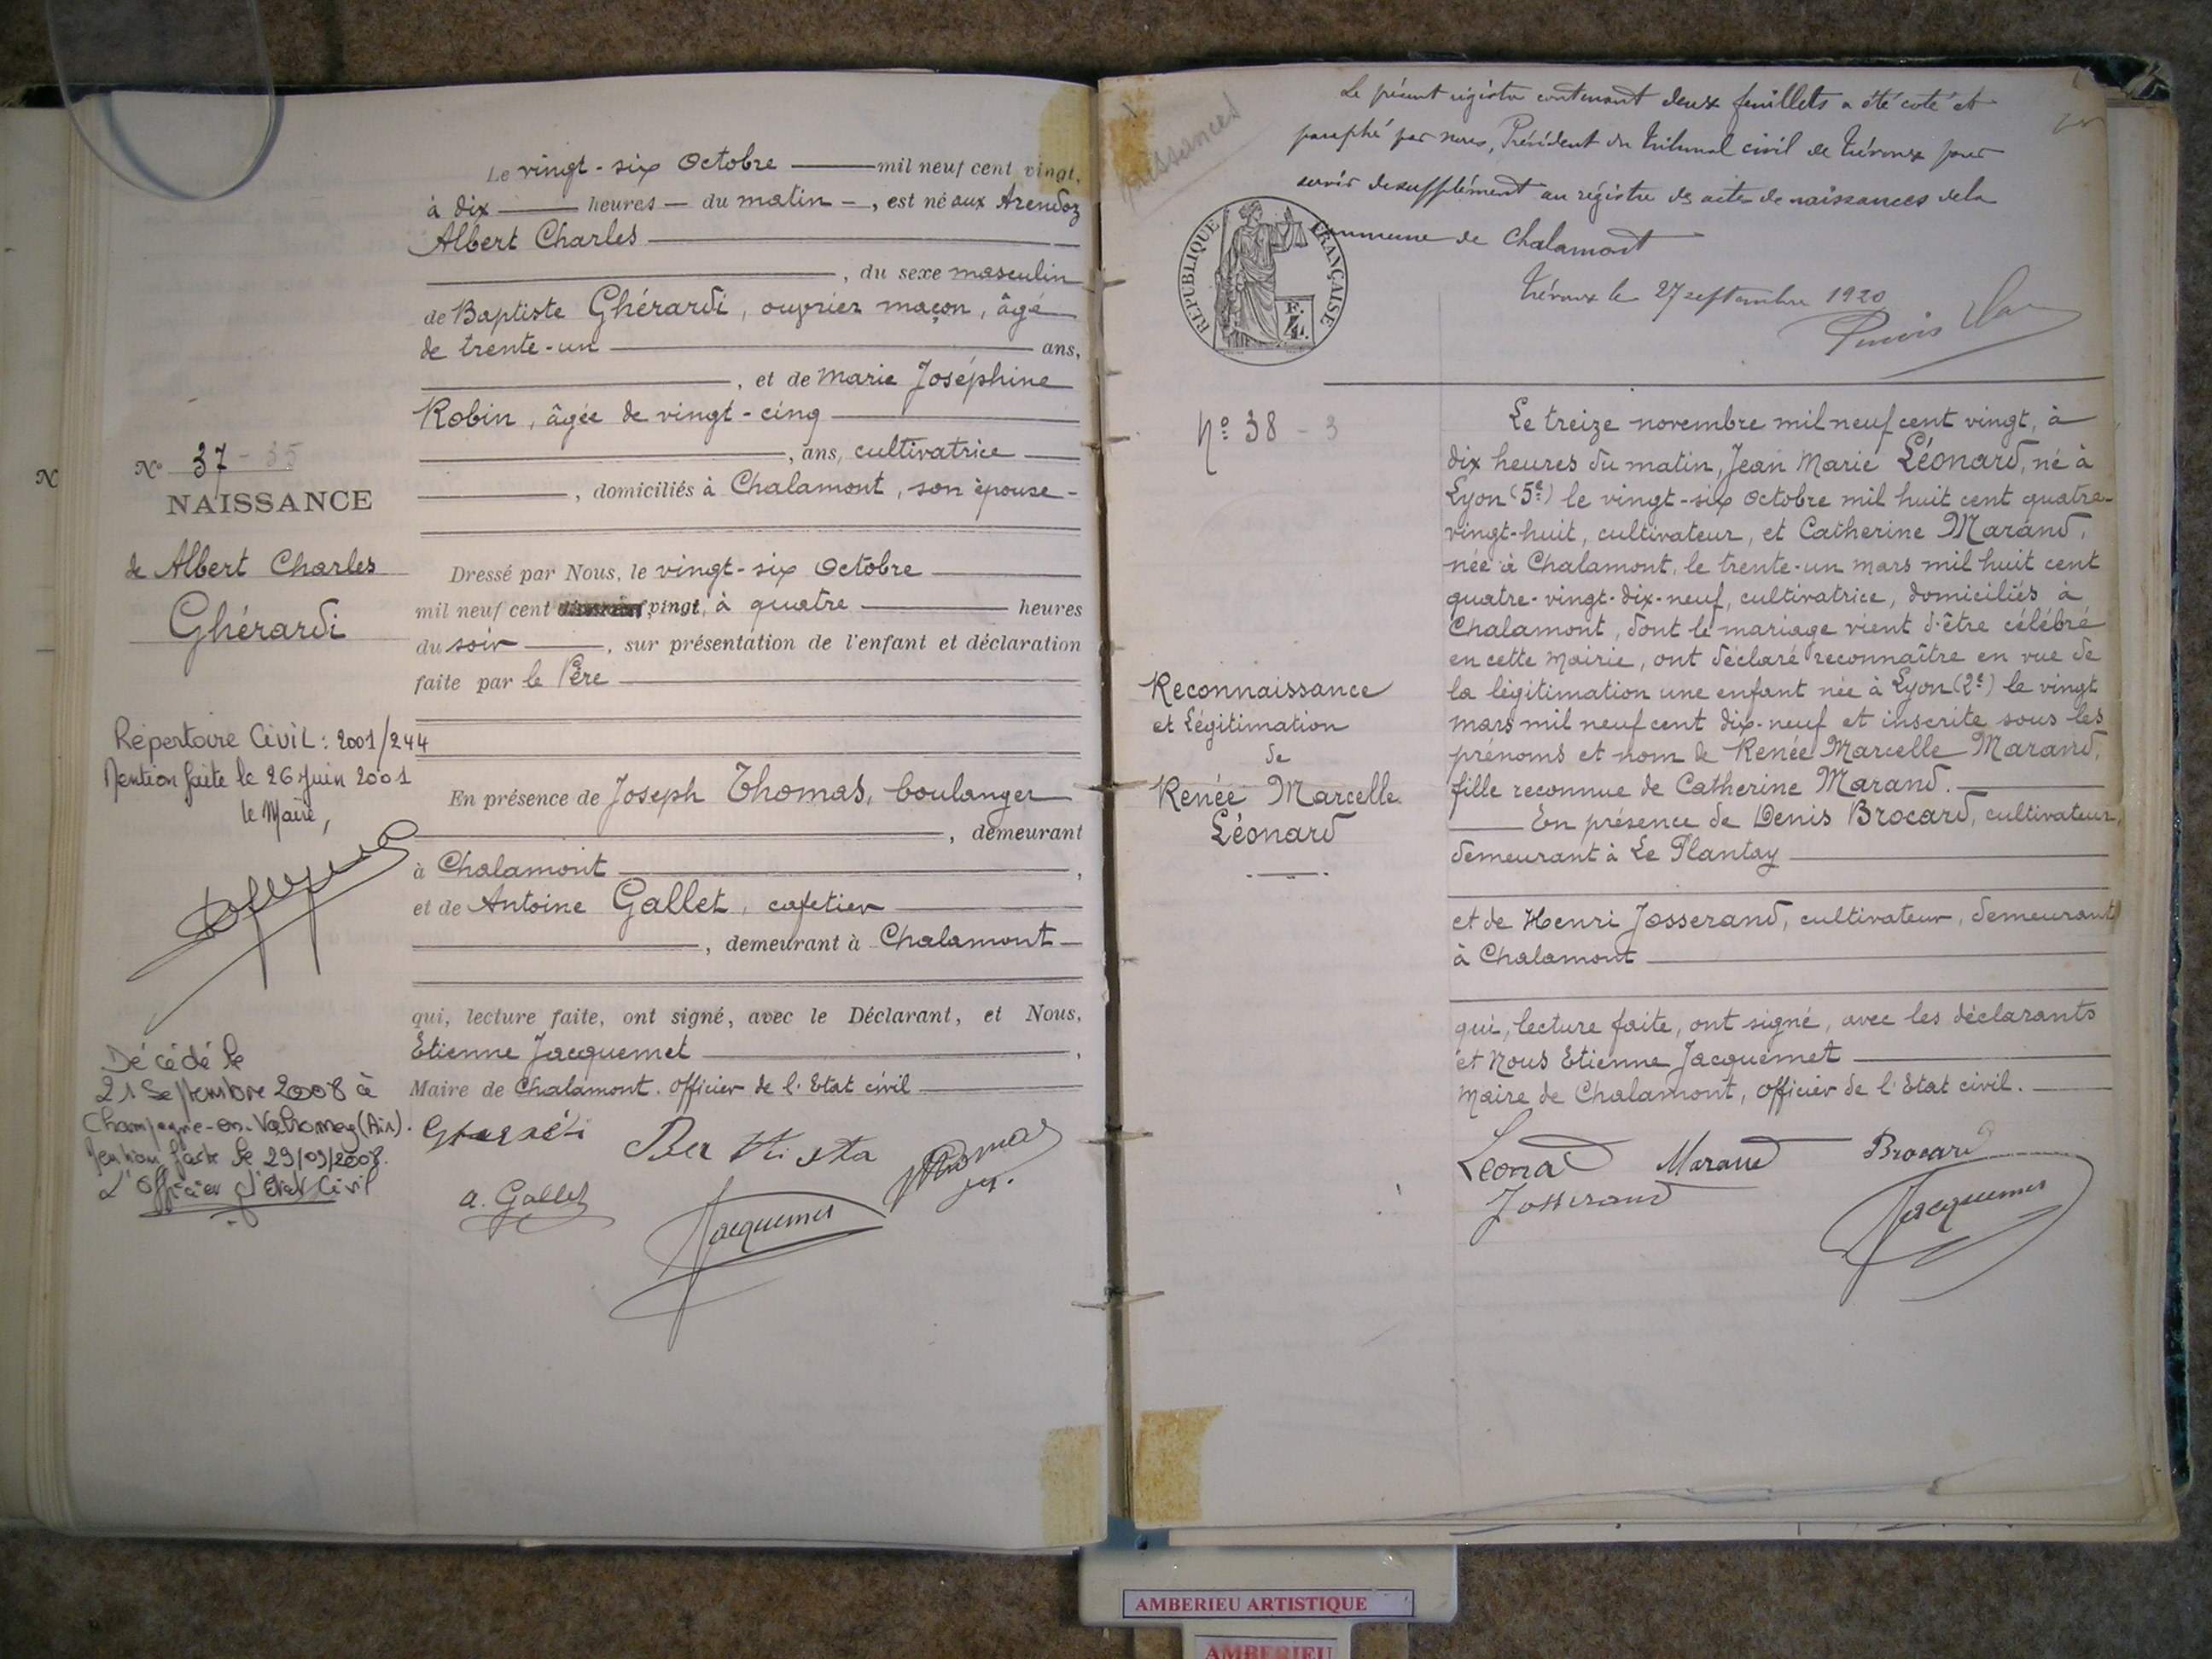 Le vingt-six Octobre mil neuf cent vingt,
à dix heures du matin, est né aux Arendoz
Albert Charles
, du sexe masculin
de Baptiste Ghérardi, ouvrier maçon, âgé
de trente-un ans,
, et de Marie Joséphine
Robin, âgée de vingt-cinq
, ans, cultivatrice
, domiciliés à Chalamont, son épouse
Dressé par Nous, le vingt-six Octobre
mil neuf cent vingt, à quatre heures
du soir, sur présentation de l'enfant et déclaration
faite par le Père
En présence de Joseph Thomas, boulanger
, demeurant
à Chalamont,
et de Antoine Gallet, cafetier
, demeurant à Chalamont
qui, lecture faite, ont signé, avec le Déclarant, et Nous,
Etienne Jacquemet,
Maire de Chalamont. Officier de l'Etat civil
a. Gallet
Jacquemet
N
N° 37 - 35
NAISSANCE
de Albert Charles
Ghérardi
Répertoire Civil : 2001/244
Mention faite le 26 Juin 2001
le Maire,
Décédé le
21 Septembre 2008 à
Champagne-en-Valromey (Ain).
Mention faite le 29/09/2008.
L'Officier d'Etat Civil
naissances
Le présent registre contenant deux feuillets a été coté et
paraphé par nous, Président du Tribunal civil de Trévoux pour
servir de supplément au registre des actes de naissances de la
commune de Chalamont
Trévoux le 27 septembre 1920
RÉPUBLIQUE FRANÇAISE
N° 38 - 3
Reconnaissance
et Légitimation
de
Renée Marcelle
Léonard
Le treize novembre mil neuf cent vingt, à
dix heures du matin, Jean Marie Léonard, né à
Lyon (5e) le vingt-six Octobre mil huit cent quatre-
vingt-huit, cultivateur, et Catherine Marand,
née à Chalamont, le trente-un mars mil huit cent
quatre-vingt-dix-neuf, cultivatrice, domiciliés à
Chalamont, dont le mariage vient d'être célébré
en cette Mairie, ont déclaré reconnaître en vue de
la légitimation une enfant née à Lyon (2e) le vingt
mars mil neuf cent dix-neuf et inscrite sous les
prénoms et nom de Renée Marcelle Marand,
fille reconnue de Catherine Marand.
En présence de Denis Brocard, cultivateur,
demeurant à Le Plantay
et de Henri Josserand, cultivateur, demeurant
à Chalamont
qui, lecture faite, ont signé, avec les déclarants
et Nous Etienne Jacquemet
Maire de Chalamont, Officier de l'Etat civil.
Leonard Marand Brocard
Josserand Jacquemet
AMBERIEU ARTISTIQUE
AMBERIEU